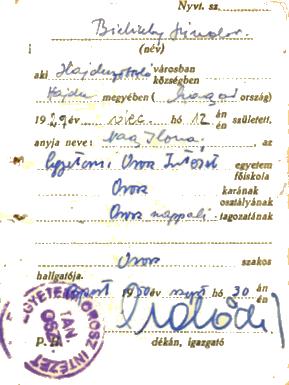 Nyvt. sz.
Sándor.
(név)
aki városban
községben
Hajdu megyében ( Magyar ország)
1929 év dec. hó 12 án
én született,
anyja neve: Nagy Ilona, az
Egyetemi Orosz Intézet egyetem
főiskola
Orosz karának
osztályának
Orosz nappali tagozatának
Orosz szakos
hallgatója.
Bpest 1950 év hó 30 án
én
P. H. dékán, igazgató
EGYETEMI OROSZ INTÉZET